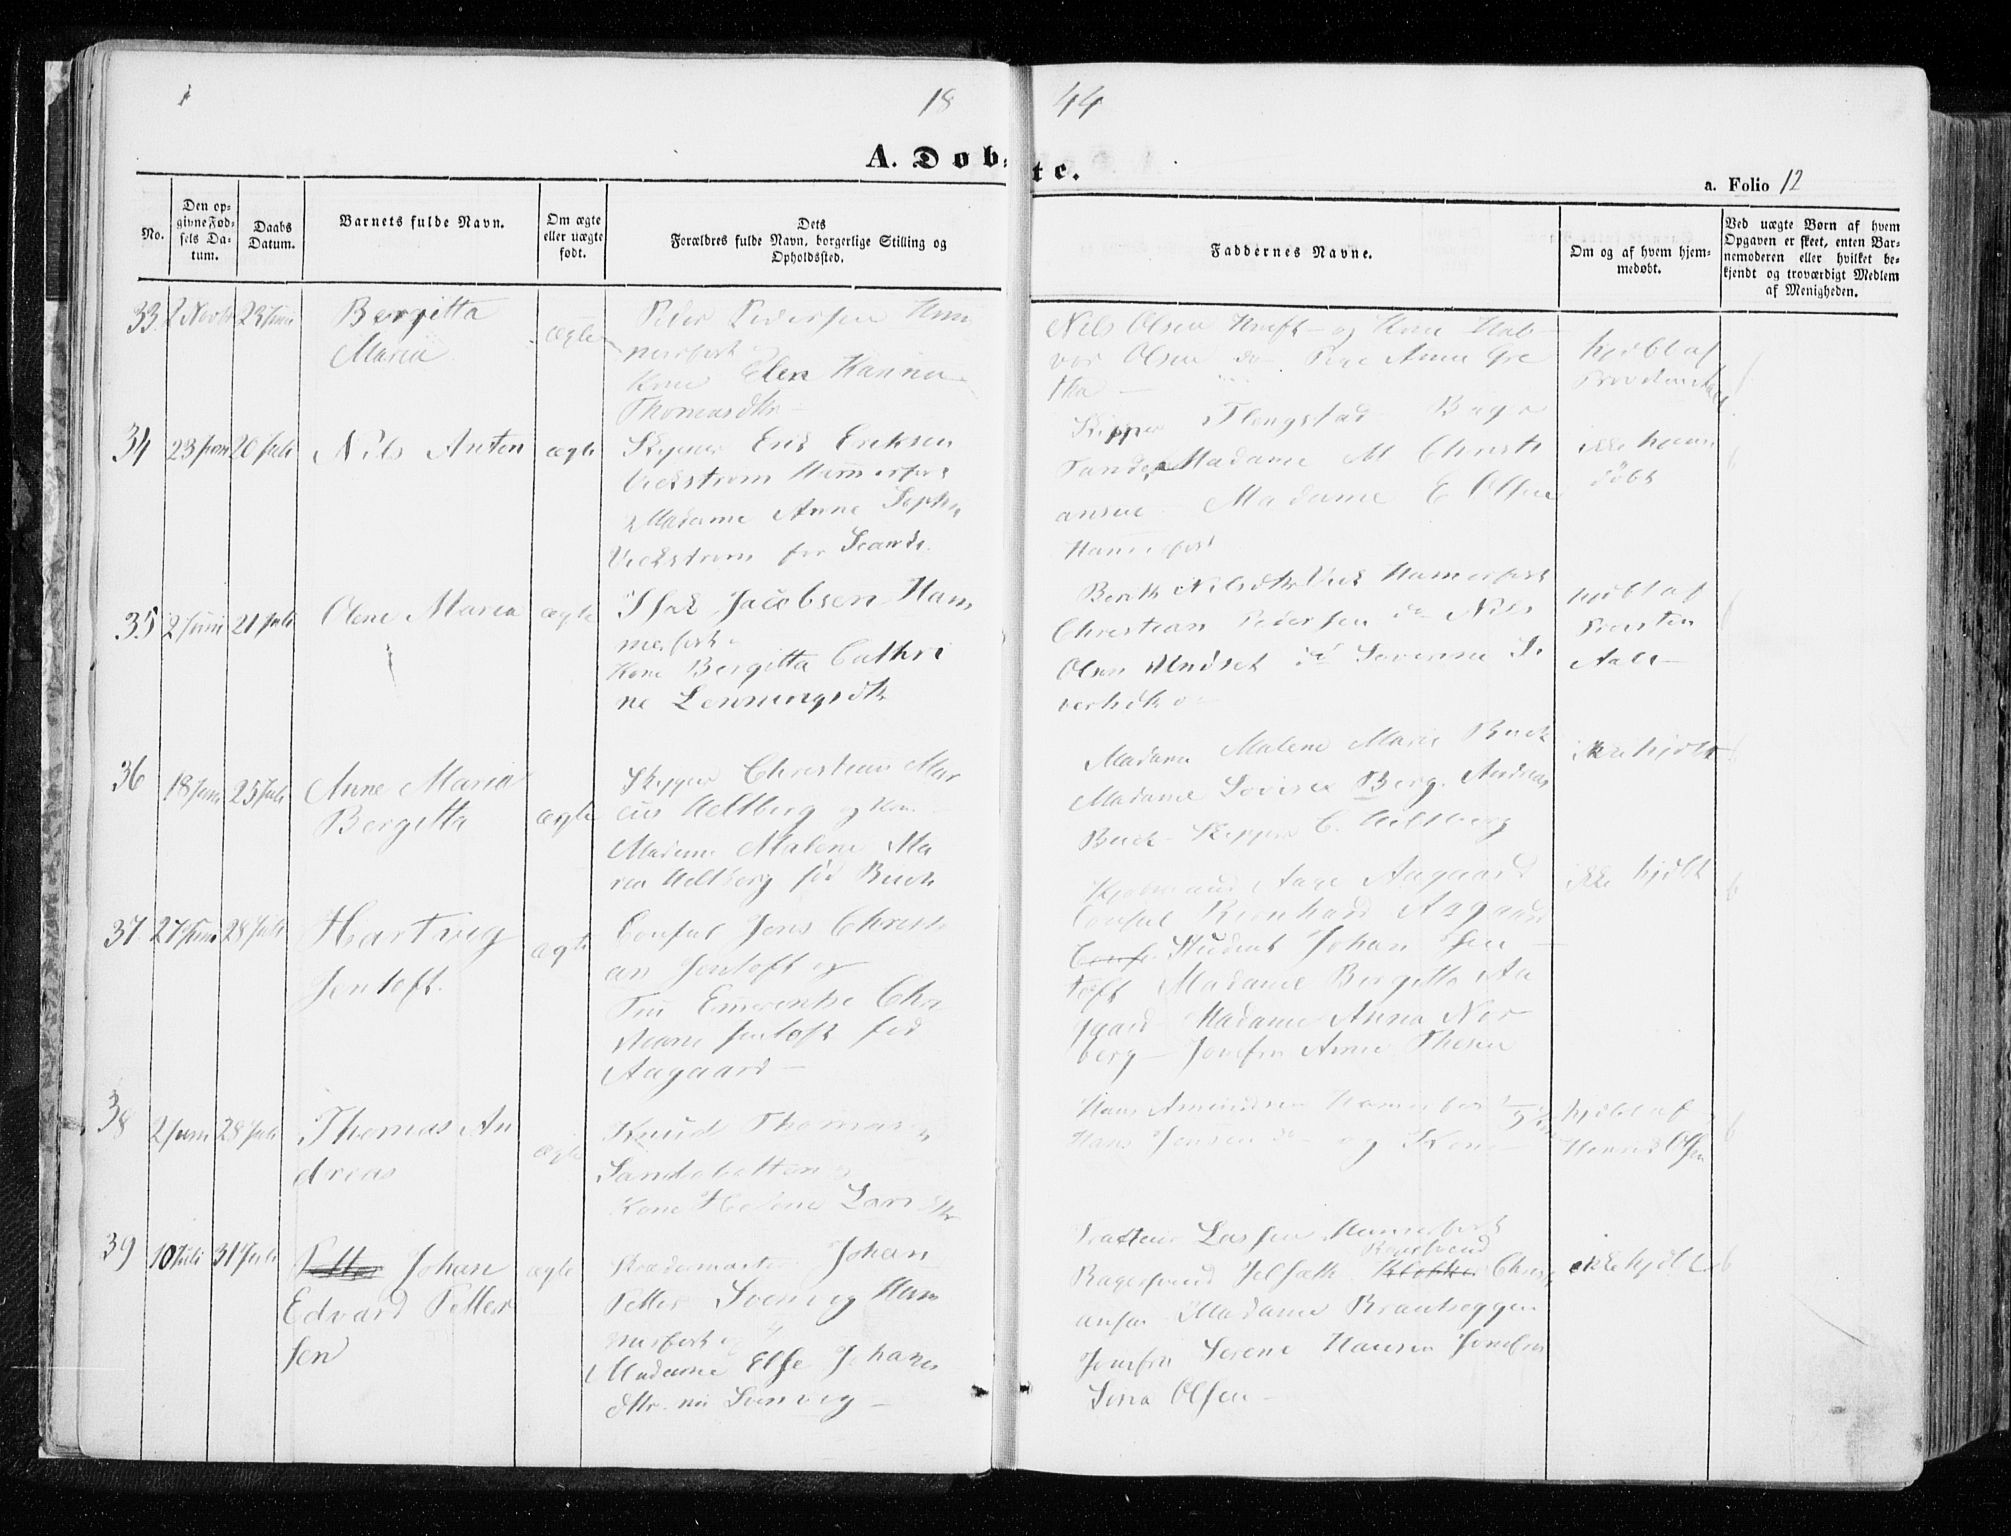 18 44
A. Døbte.
a. Folio 12
No.
Den opgivne Fødsels Datum.
Daabs Datum.
Barnets fulde Navn.
Om ægte eller uægte født.
Dets Forældres fulde Navn, borgerlige Stilling og Opholdssted.
Faddernes Navne.
Om og af hvem hjemmedøbt.
Ved uægte Børn af hvem Opgaven er skeet, enten Barnemoderen eller hvilket bekjendt og troværdigt Medlem af Menigheden.
33 2 Novbr 23 Juni
Bergitta
Maria
ægte
Peder Pedersen Ham
merfest
Kone Elen Hanna
Thomasdtr
Nils Olsen og Kone Hal
vor Olsen do Pige Anne Gre
tha
hjdbt af
34 23 Juni 20 Juli
Nils Anton
ægte
Skipper Erik Eriksen
Vickstrøm Hammerfest
Madame Anne Sophie
Vickstrøm før
Skipper Flengstad
Madame M Christi
ansen Madame E Olsen
Hammerfest
ikke hjem
døbt
35 2 Juni 21 Juli
Olene Maria
ægte
Isak Jacobsen Ham
merfest
Kone Bergitta Cathri
ne Lenningsdtr
Berith Nilsdtr Hamerfest
Christian Pedersen do Nils
Olsen do Severine Si
vertsdtr
hjdbt af
Presten
Aale
36 18 Juni 25 Juli
Anne Maria
Bergitta
ægte
Skipper Christian Mar
cus Heltberg og Kone
Madame Malene Ma
ria Heltberg fød Buck
Madame Malene Marie Buck
Madame Lovise Berg. Andreas
Buck Skipper C. Heltberg
ikke hjdbt
37 27 Juni 28 Juli
Hartvig
Jentoft.
ægte
Consul Jens Christi
an Jentoft og
Fru Emerentse Chri
stiane Jentoft fød
Aagaard
Kjøbmand Aage Aagaard
Consul Bernhard Aagaard
Student Johan Jen
toft Madame Bergitta Aa
gaard Madame Anna Nor
berg Jomfru Anne Thesen
ikke hjdbt
38 2 Juni 28 Juli
Thomas An
dreas
ægte
Knud Thomas
Sandebotten
Kone Helene Larsdtr
Hans Amundsen Hamerfest
Hans Jensen do og Kone
hjdbt af
Henrik Olsen
39 10 Juli 31 Juli
Petter Johan
Edvard Petter
sen
ægte
Johan
Petter Svenvig Ham
merfest og
Madame Else Johanes
dtr. nu Svenvig
Lassen Hammerfest
Bagersvend
Bagersvend Christi
ansen Madame Brantseggen
Jomfru Serene Hansen Jomfru
Olsen
ikke hjdbt